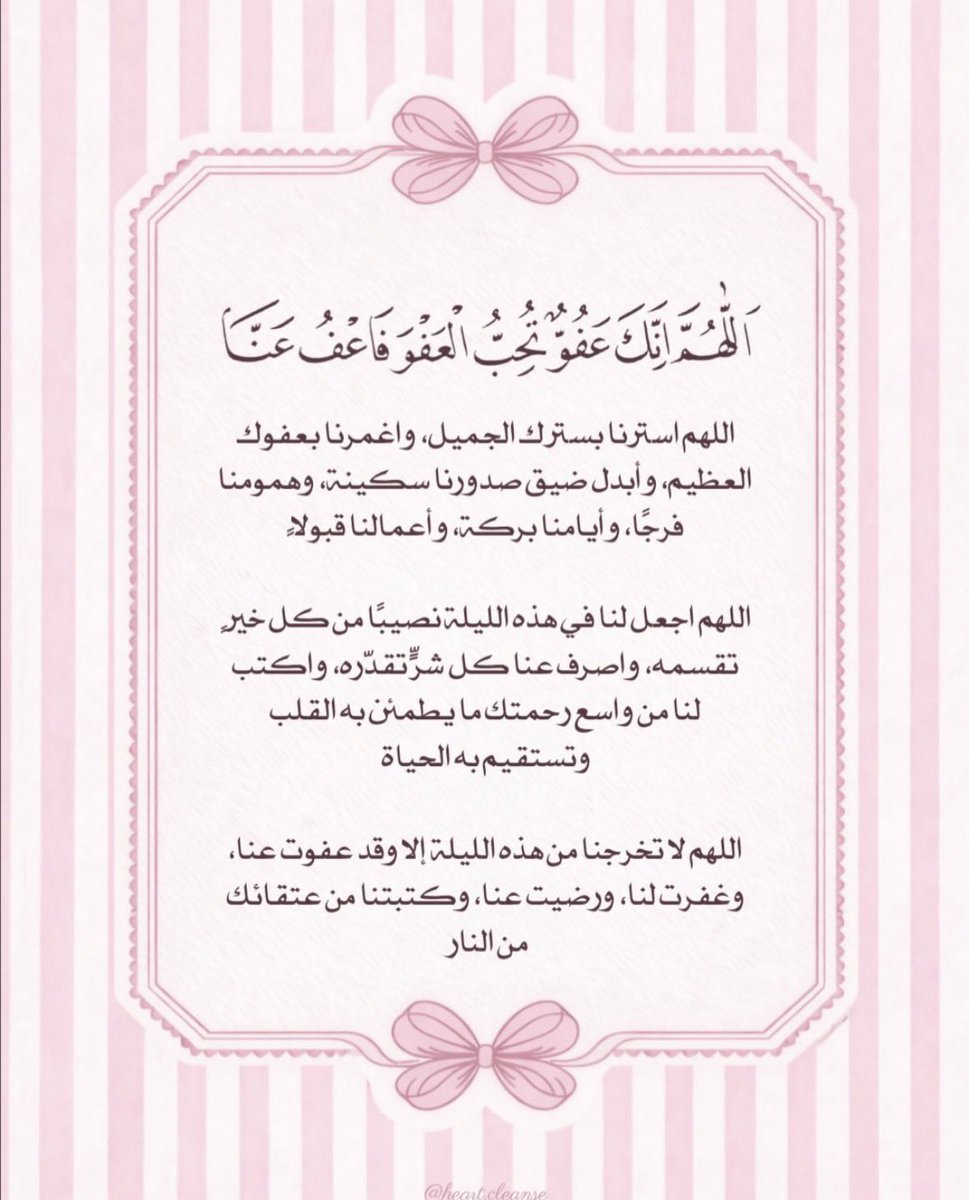 اَللّٰهُمَّ اِنَّكَ عَفُوٌّ تُحِبُّ الْعَفْوَ فَاعْفُ عَنَّا
اللهم استرنا بسترك الجميل، واغمرنا بعفوك
العظيم، وأبدل ضيق صدورنا سكينة، وهمومنا
فرجًا، وأيامنا بركة، وأعمالنا قبولاً
اللهم اجعل لنا في هذه الليلة نصيبًا من كل خيرٍ
تقسمه، واصرف عنا كل شرٍّ تقدّره، واكتب
لنا من واسع رحمتك ما يطمئن به القلب
وتستقيم به الحياة
اللهم لا تخرجنا من هذه الليلة إلا وقد عفوت عنا،
وغفرت لنا، ورضيت عنا، وكتبتنا من عتقائك
من النار
@heart.cleanse